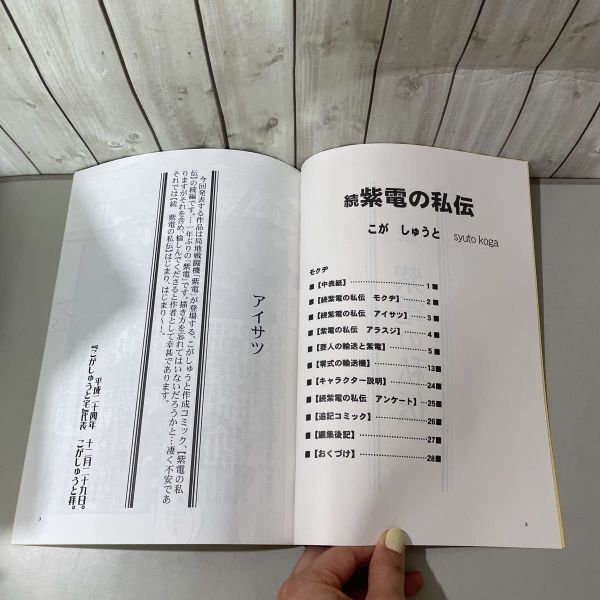 続 紫電の私伝
こが しゅうと syuto koga
モクヂ
■【中表紙】 1 ■
■【続紫電の私伝 モクヂ】 2 ■
■【続紫電の私伝 アイサツ】 3 ■
■【紫電の私伝 アラスジ】 4 ■
■【要人の輸送と紫電】 5 ■
■【零式の輸送機】 13 ■
■【キャラクター説明】 24 ■
■【続紫電の私伝 アンケート】 25 ■
■【追記コミック】 26 ■
■【編集後記】 27 ■
■【おくづけ】 28 ■
2
アイサツ
今回発表する作品は局地戦闘機「紫電」が登場する、こがしゅうと作成コミック、【紫電の私
伝】の続編です。…一年ぶりの「紫電」です。描き方を忘れてはいないだろうかと…凄く不安であ
りますがそれを含め、愉しんでくださると作者として幸甚であります。
それでは【続 紫電の私伝】はじまり、はじまり〜!。
平成二十四年 十二月二十九日。
『こがしゅうと宅』代表 こがしゅうと拝。
3